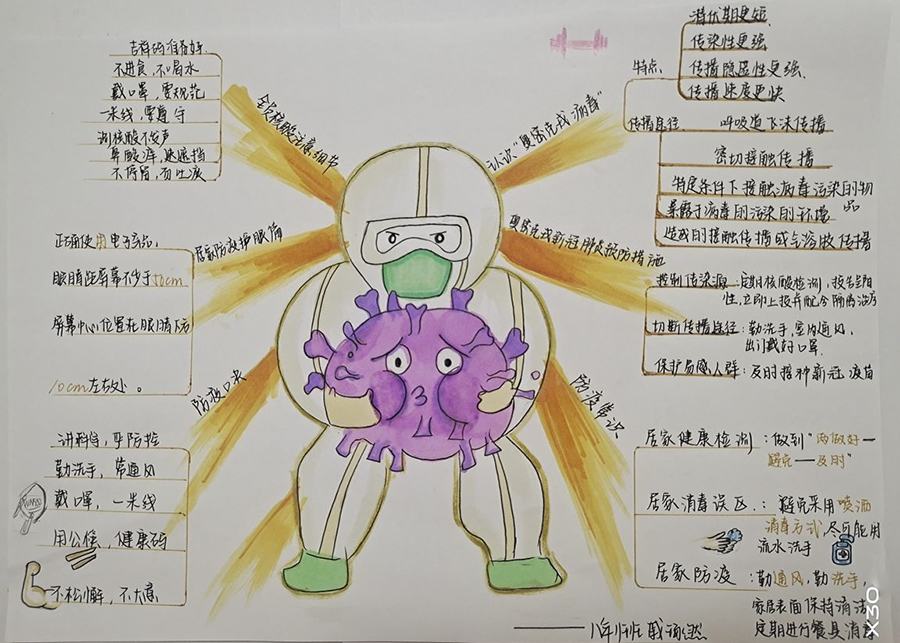 吉祥码准备好
不进食，不喝水
戴口罩，要规范
一米线，要遵守
测核酸不发声
不停留，勿吐痰
全员核酸注意细节
居家防疫护眼篇
正确使用电子产品，
眼睛距屏幕不少于50cm
屏幕中心位置在眼睛下方
10cm左右处。
防疫口诀
讲科学，早防控
勤洗手，常通风
戴口罩，一米线
用公筷，健康码
不松懈，不大意
认识“奥密克戎病毒”
特点
潜伏期更短
传染性更强
传播隐匿性更强
传播速度更快
传播途径
呼吸道飞沫传播
密切接触传播
特定条件下接触病毒污染的物
品
暴露于病毒的污染的环境
造成的接触传播或气溶胶传播
奥密克戎新冠肺炎预防措施
控制传染源：定期核酸检测，报告阳
性，立即上报并配合隔离治疗
切断传播途径：勤洗手，室内通风，
出门戴好口罩。
保护易感人群：及时接种新冠疫苗
防疫常识
居家健康检测：做到“两做好一
避免一及时”
居家消毒误区：避免采用喷洒
消毒方式，尽可能用
流水洗手
居家防疫：勤通风，勤洗手，
家居表面保持清洁
定期进行餐具消毒
X30